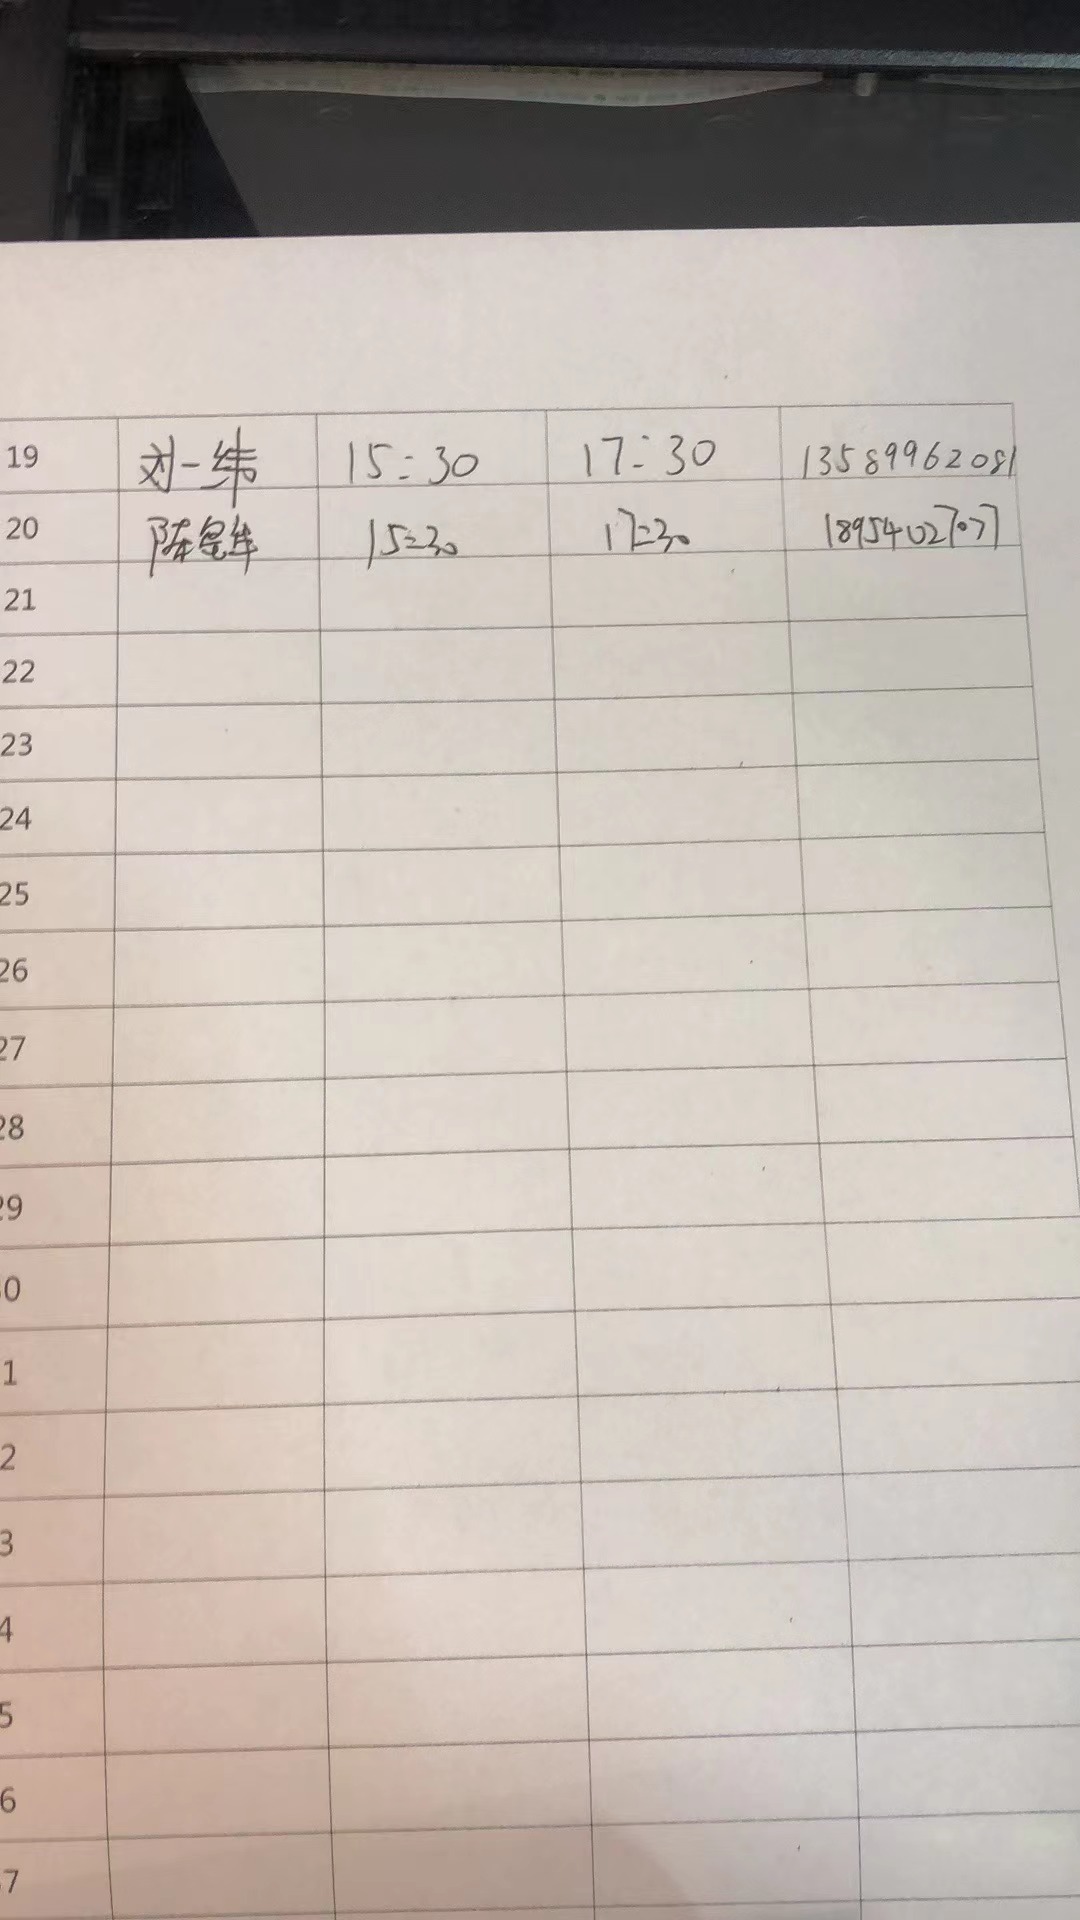 19 刘一纬 15:30 17:30 13589962081
20 陈 15:30 17:30 18954027077
21
22
23
24
25
26
27
28
29
0
1
2
3
4
5
6
7